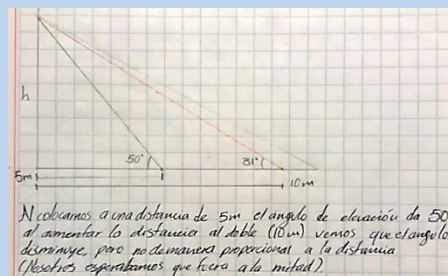 h
50° 31°
5m 10m
N colocamos a una distancia de 5m el angulo de elevación da 50
al aumentar la distancia al doble (10m) vemos que el angulo
disminuye, pero no de manera proporcional a la distancia
(Nosotros esperabamos que fuera a la mitad)